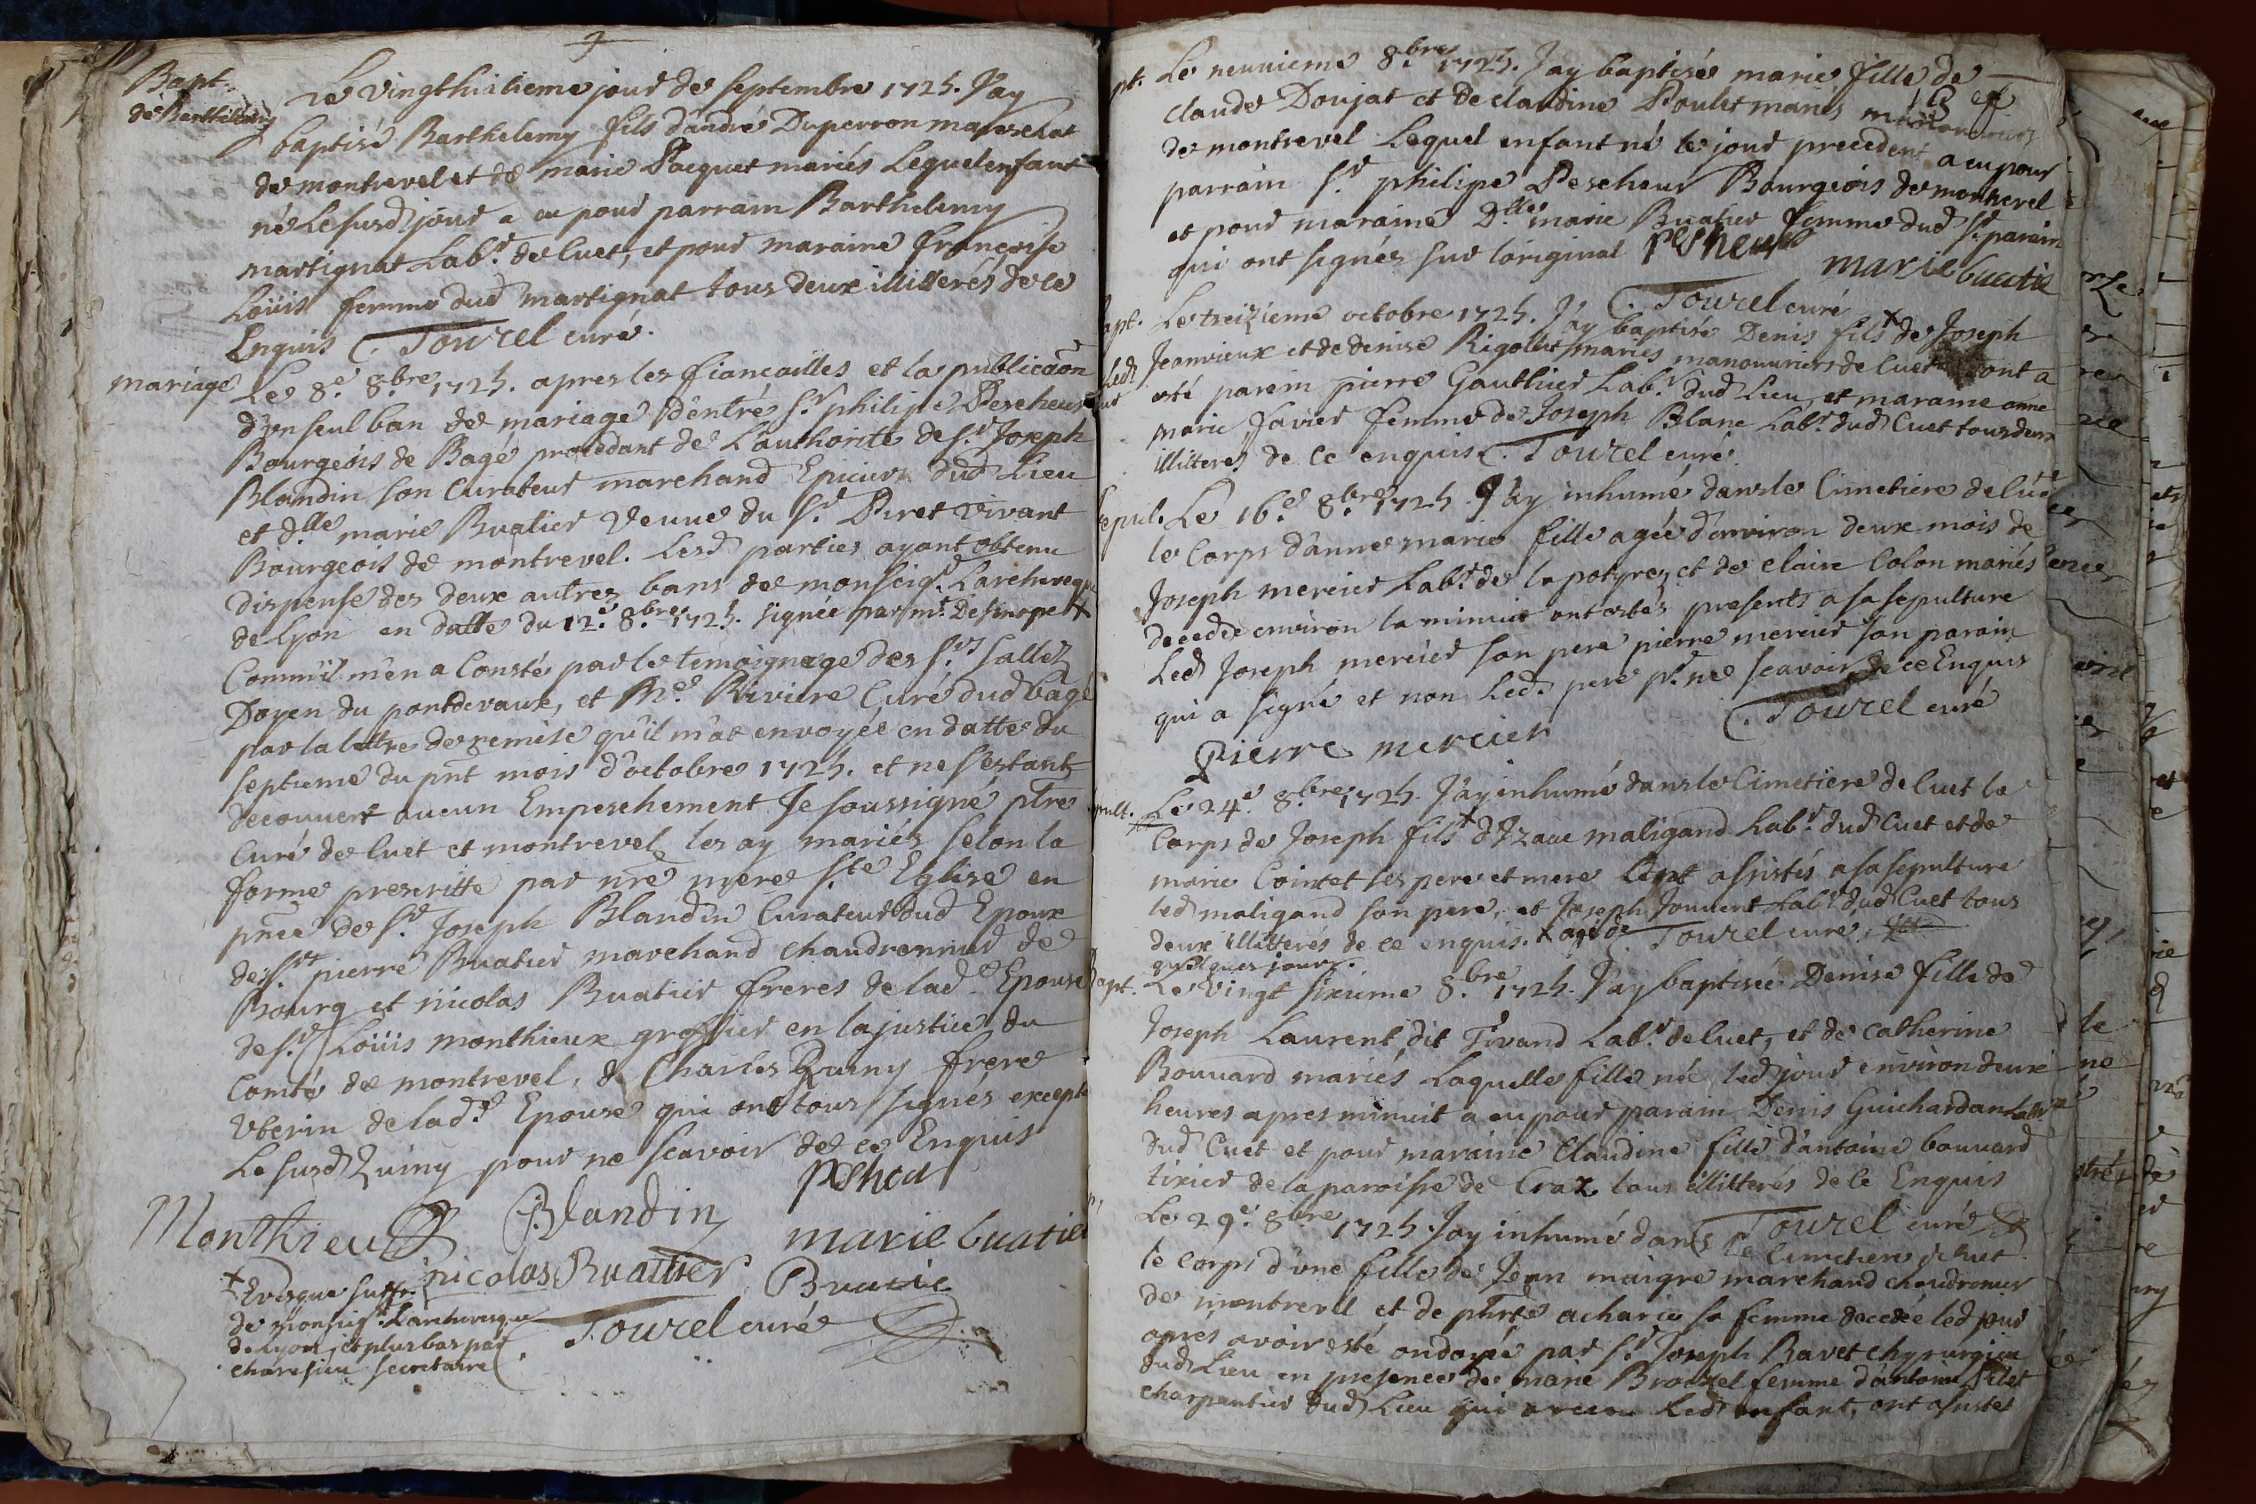 Bapt.
de Barthélemy
Le vingthuitieme jour de septembre 1725. J'ay
baptisé Barthelemy fils d'andré Duperron mareschal
de montrevel et de marie Pacquet mariés Lequel enfant
né Le susd jour a eu pour parrain Barthelemy
martignat Labr. de Cuet, et pour maraine françoise
Loüis femme dud martignat tous deux illitterés de ce
Enquis C. Tourel curé.
mariage Le 8.e 8.bre 1725. apres les fiancailles et la publicaon
d'un seul ban de mariage d'entre Sr. philipe Pescheur
Bourgeois de Bagé procedant de L'authorité de Sr. Joseph
Blandin son Curateur marchand Epicier dud Lieu
et d.lle marie Buatier veuve du Sr. Piret vivant
Bourgeois de montrevel. Lesd parties ayant obtenu
dispense des deux autres bans de monseigr. L'archeveque
de Lyon en datte du 12.e 8.bre 1725. signée par mr. De sinope +
Comm'il m'en a Consté par le temoignage des Srs. Sallez
Doyen du pontdevaux, et Me. Riviere Curé dud bagé
par la lettre de remise qu'il m'at envoyée en datte du
septieme du pnt mois d'octobre 1725. et ne s'estant
decouvert aucun Empeschement Je soussigné ptre
Curé de Cuet et montrevel les ay mariés selon la
forme prescritte par nre mere Ste Eglise en
pnce de Sr. Joseph Blandin Curateur dud Epoux
de Srs. pierre Buatier marchand chaudronnier de
Bourg et nicolas Buatier freres de lad.e Epouse
de Sr. Loüis monthieux greffier en la justice du
Comté de montrevel, de Charles Quiny frere
Uberin de lad.e Epouse qui ont tous signés excepté
Le susd Quiny pour ne scavoir de ce Enquis
Pesheur
Monthieux Blandin marie buatier
nicolas Buattier Buatie
+ Evesque suffr.
de monseigr. L'archevesque
de Lyon, et plus bas par
chare sieu secretaire
C. Tourel curé
pt. Le neuvieme 8.bre 1725. J'ay baptisée marie fille de
Claude Doujat et de claudine Poulet mariés manouvriers
de montrevel Lequel enfant né le jour precedent a eu pour
parrain Sr. philipe Pescheur Bourgeois de montrevel
et pour maraine D.lle marie Buatier femme dud Sr. parain
qui ont signés sur l'original Pesheur
marie buatie
C. Tourel curé
apt. Le treizieme octobre 1725. J'ay baptisé Denis fils de Joseph
Jeanvieux et de denise Rigollet mariés manouvriers de Cuet dont a
esté parein pierre Gauthier Labr. dud Lieu, et maraine anne
marie Javier femme de Joseph Blanc Labr. dud Cuet tous deux
illitterés de ce enquis C. Tourel curé
sepul. Le 16.e 8.bre 1725. J'ay inhumé dans le Cimetiere de Cuet
le Corps d'anne marie fille agée d'environ deux mois de
Joseph mercier Labr. de la potyre, et de claire Colon mariés
decedée environ la minuit ont estés presents a sa sepulture
Led Joseph mercier son pere pierre mercier son parain
qui a signé et non Led. pere pr. ne scavoir de ce Enquis
C. Tourel curé
Pierre mercier
pult. Le 24.e 8.bre 1725. J'ay inhumé dans le Cimetiere de Cuet le
Corps de Joseph fils + d'Izaac maligand Labr. dud Cuet et de
marie Cointet ses pere et mere Ont assistés a sa sepulture
led maligand son pere, et Joseph Jouvent Labr. dud Cuet tous
deux illitterés de ce enquis. + agé de C. Tourel curé.
quelques jours.
apt. Le vingt sixieme 8.bre 1725. J'ay baptisée Denise fille de
Joseph Laurent dit Tivand Labr. de Cuet, et de catherine
Bouvard mariés, Laquelle fille née led jour environ deux
heures apres minuit a eu pour parain Denis Guichardan Labr
dud Cuet et pour maraine Claudine fille d'antoine bouvard
tixier de la paroisse de Craz tous illitterés de ce Enquis
C. Tourel curé
Le 29.e 8bre 1725. J'ay inhumé dans le Cimetiere de Cuet
le corps d'une fille de Jean maigre marchand chaudronier
de montrevel et de pierrete acharie sa femme decedée led jour
après avoir esté ondoyée par Sr. Joseph Ravet chyrurgien
dud Lieu en presence de marie Brockel femme d'antoine
charpentier dud Lieu qui a receu Led enfant, ont assistés